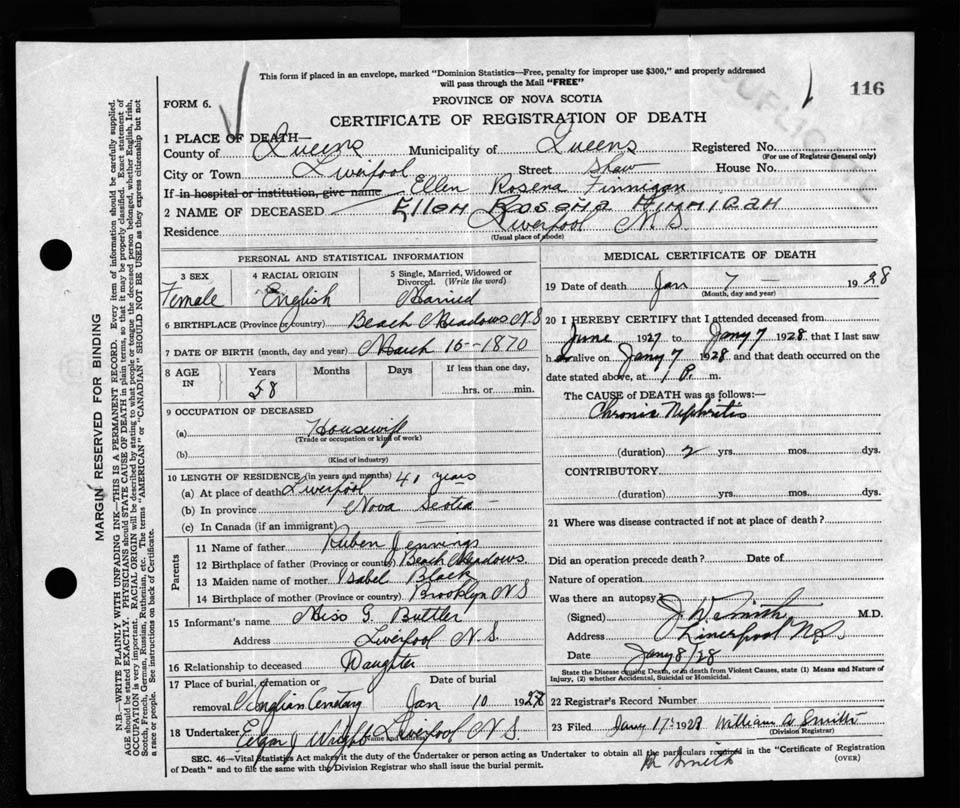 This form if placed in an envelope, marked "Dominion Statistics—Free, penalty for improper use $300," and properly addressed
will pass through the Mail "FREE"
116
DUPLICATE
FORM 6.
PROVINCE OF NOVA SCOTIA
CERTIFICATE OF REGISTRATION OF DEATH
1 PLACE OF DEATH—
County of Queens Municipality of Queens Registered No.
(For use of Registrar General only)
City or Town Liverpool Street Shaw House No.
If in hospital or institution, give name Ellen Rosena Finnigan
2 NAME OF DECEASED Ellen Rosena Finnigan
Residence Liverpool N.S.
(Usual place of abode)
PERSONAL AND STATISTICAL INFORMATION
3 SEX 4 RACIAL ORIGIN 5 Single, Married, Widowed or Divorced. (Write the word)
Female English Married
6 BIRTHPLACE (Province or country) Beach Meadows N.S
7 DATE OF BIRTH (month, day and year) March 16-1870
8 AGE IN Years Months Days If less than one day,
58 hrs. or min.
9 OCCUPATION OF DECEASED
(a) Housewife
(Trade or occupation or kind of work)
(b)
(Kind of industry)
10 LENGTH OF RESIDENCE (in years and months) 41 years
(a) At place of death Liverpool
(b) In province Nova Scotia
(c) In Canada (if an immigrant)
Parents
11 Name of father Ruben Jennings
12 Birthplace of father (Province or country) Beach Meadows
13 Maiden name of mother Isabel Black
14 Birthplace of mother (Province or country) Brooklyn N S
15 Informant's name Miss G. Buttler
Address Liverpool N.S.
16 Relationship to deceased Daughter
17 Place of burial, cremation or removal Date of burial
Cemetary Jan 10 1928
18 Undertaker Edgar J Wright Liverpool N.S.
Name and address
MEDICAL CERTIFICATE OF DEATH
19 Date of death Jan 7 — 1928
(Month, day and year)
20 I HEREBY CERTIFY that I attended deceased from
June 1927 to Jany 7 1928 that I last saw
h alive on Jany 7 1928 and that death occurred on the
date stated above, at 1 P. m.
The CAUSE of DEATH was as follows:—
Chronic Nephritis
(duration) 2 yrs. mos. dys.
CONTRIBUTORY
(duration) yrs. mos. dys.
21 Where was disease contracted if not at place of death?
Did an operation precede death? Date of
Nature of operation
Was there an autopsy?
(Signed) J. W. Smith M.D.
Address Liverpool N.S.
Date Jany 8/28
State the Disease causing Death, or in death from Violent Causes, state (1) Means and Nature of
Injury, (2) whether Accidental, Suicidal or Homicidal.
22 Registrar's Record Number
23 Filed Jany 17 1928 William A Smith
(Division Registrar)
SEC. 46—Vital Statistics Act makes it the duty of the Undertaker or person acting as Undertaker to obtain all the particulars required in the "Certificate of Registration
of Death" and to file the same with the Division Registrar who shall issue the burial permit.
Smith
(OVER)
MARGIN RESERVED FOR BINDING
N.B.—WRITE PLAINLY WITH UNFADING INK—THIS IS A PERMANENT RECORD. Every item of information should be carefully supplied.
AGE should be stated EXACTLY. PHYSICIANS should STATE CAUSE OF DEATH in plain terms, so that it may be properly classified. Exact statement of
OCCUPATION is very important. RACIAL ORIGIN will be described by stating to what people or tongue the deceased person belonged, whether English, Irish,
Scotch, French, German, Russian, Ruthenian, etc. The terms "AMERICAN" or "CANADIAN" SHOULD NOT BE USED as they express citizenship but not
a race or people. See instructions on back of Certificate.